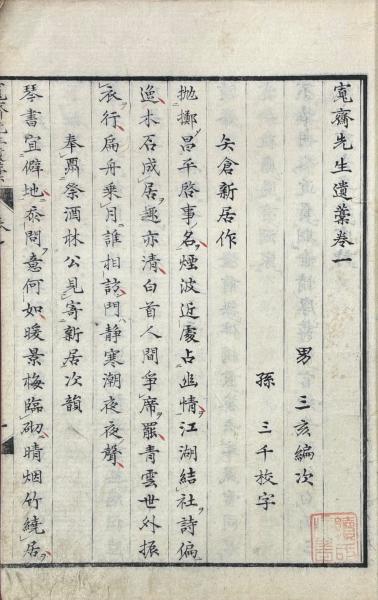 寬齋先生遺藁卷一
男三亥編次
孫三千校字
矢倉新居作
抛擲昌平啓事名煙波近處占幽情江湖結社詩偏
逸木石成居趣亦清白首人間爭席罷青雲世外振
衣行扁舟乘月誰相訪門静寒潮夜夜聲
奉祭酒林公見寄新居次韻
琴書宜僻地忝問意何如暖景梅臨砌晴烟竹繞居